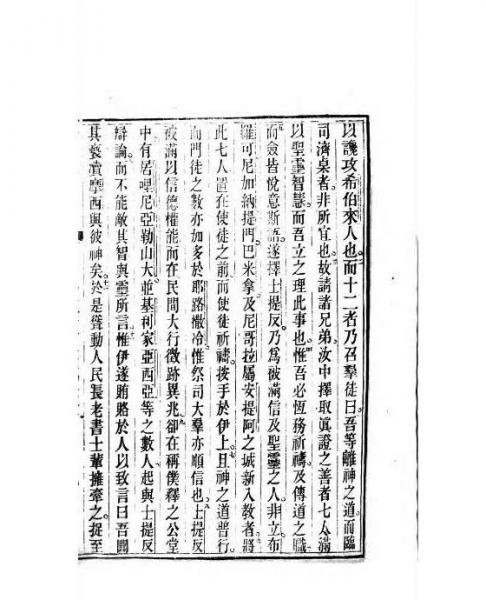 以讒攻希伯來人也。而十二者乃召羣徒曰。吾等離神之道。而臨
司濟桌者。非所宜也。故請諸兄弟。汝中擇取眞證之善者七人滿
以聖靈智慧。而吾立之理此事也。惟吾必恆務祈禱。及傳道之職
而僉皆悅意斯語。遂擇士提反。乃爲被滿信及聖靈之人。非立。布
羅可尼加納提門。巴米拿及尼哥拉屬安提阿之城新入教者。將
此七人置在使徒之前而使徒祈禱。按手於伊上。且神之道普行。
而門徒之數亦加多於耶路撒冷。惟祭司大羣亦順信也。士提反
被滿以信德權能而在民間大行徵跡異兆。卻在稱僕釋之公堂
中有居哩尼亞勒山大並基利家亞西亞等之數人。起與士提反
辯論。而不能敵其智與靈所言。惟伊遂賄賂於人以致言曰。吾聞
其褻瀆摩西與彼神矣。於是聳動人民長老書士輩擁牽之。捉至